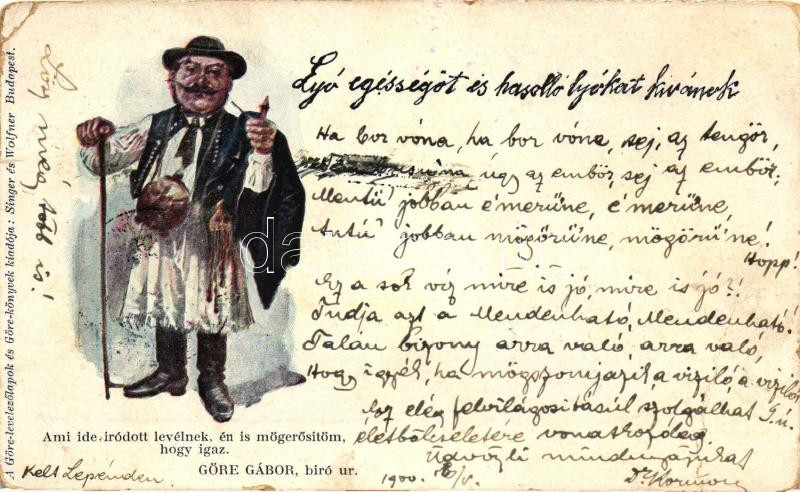 A Göre-levelezőlapok és Göre-könyvek kiadója: Singer és Wolfner Budapest.
még több is!
Lyó egésségöt és hasolló lyókat kivánok
Ha bor vóna, ha bor vóna, sej, az tengör,
úgy az embör, sej az embör;
Mentű jobban é'merűne, é'merűne,
Antú jobban mögörűne, mögörű'ne!
Hopp!
Ez a sok víz mire is jó, mire is jó?!
Tudja azt a Mendenható, Mendenható!
Talán bizony arra való, arra való,
Hogy igyék, ha mögszomjazik a viziló, a viziló
Ez elég felvilágositásúl szolgálhat
életbölcseletére vonatkozólag.
Üdvözli mindnyájukat
Ami ide iródott levélnek, én is mögerősitöm,
hogy igaz.
GÖRE GÁBOR, biró ur.
Kelt Lepénden 1900.